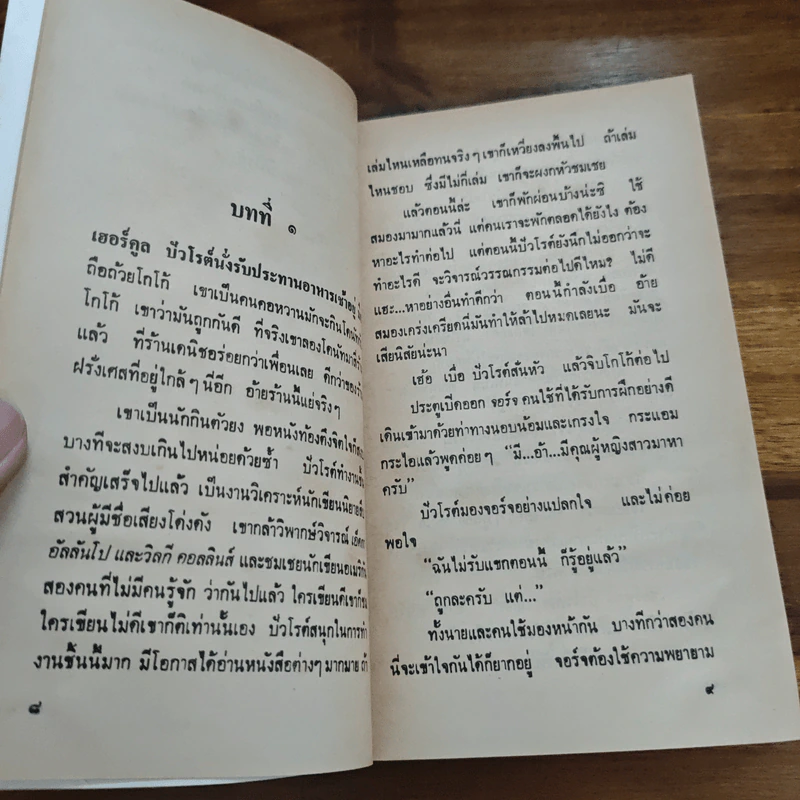 บทที่ ๑
เฮอร์คูล ปัวโรต์นั่งรับประทานอาหารเช้าอยู่
ถือถ้วยโกโก้ เขาเป็นคนคอหวานมักจะกินโดนัท
โกโก้ เขาว่ามันถูกกันดี ที่จริงเขาลองโดนัทมา
แล้ว ที่ร้านเดนิชอร่อยกว่าเพื่อนเลย ดีกว่าของ
ฝรั่งเศสที่อยู่ใกล้ๆ นี่อีก อ้ายร้านนี้แย่จริงๆ
เขาเป็นนักกินตัวยง พอหนังท้องตึงจิตใจก็
บางทีจะสงบเกินไปหน่อยด้วยซ้ำ ปัวโรต์ทำงาน
สำคัญเสร็จไปแล้ว เป็นงานวิเคราะห์นักเขียนนิยาย
สวนผู้มีชื่อเสียงโด่งดัง เขากล้าวิพากษ์วิจารณ์
อัลลันโป และวิลกี คอลลินส์ และชมเชยนักเขียนอเมริกัน
สองคนที่ไม่มีคนรู้จัก ว่ากันไปแล้ว ใครเขียนดีเขาก็
ใครเขียนไม่ดีเขาก็ติเท่านั้นเอง ปัวโรต์สนุกในการทำ
งานชิ้นนี้มาก มีโอกาสได้อ่านหนังสือต่างๆ มากมาย ถ้า
๘
เล่มไหนเหลือทนจริงๆ เขาก็เหวี่ยงลงพื้นไป ถ้าเล่ม
ไหนชอบ ซึ่งมีไม่กี่เล่ม เขาก็จะผงกหัวชมเชย
แล้วตอนนี้ล่ะ เขาก็พักผ่อนบ้างน่ะซิ ใช้
สมองมามากแล้วนี่ แต่คนเราจะพักตลอดได้ยังไง ต้อง
หาอะไรทำต่อไป แต่ตอนนี้ปัวโรต์ยังนึกไม่ออกว่าจะ
ทำอะไรดี จะวิจารณ์วรรณกรรมต่อไปดีไหม? ไม่ดี
แฮะ...หาอย่างอื่นทำดีกว่า ตอนนี้กำลังเบื่อ อ้าย
สมองเคร่งเครียดนี่มันทำให้ล้าไปหมดเลยนะ มันจะ
เสียนิสัยน่ะนา
เฮ้อ เบื่อ ปัวโรต์สั่นหัว แล้วจิบโกโก้ต่อไป
ประตูเปิดออก จอร์จ คนใช้ที่ได้รับการฝึกอย่างดี
เดินเข้ามาด้วยท่าทางนอบน้อมและเกรงใจ กระแอม
กระไอแล้วพูดค่อยๆ “มี...อ้า...มีคุณผู้หญิงสาวมาหา
ครับ”
ปัวโรต์มองจอร์จอย่างแปลกใจ และไม่ค่อย
พอใจ
“ฉันไม่รับแขกตอนนี้ ก็รู้อยู่แล้ว”
“ถูกละครับ แต่...”
ทั้งนายและคนใช้มองหน้ากัน บางทีกว่าสองคน
นี่จะเข้าใจกันได้ก็ยากอยู่ จอร์จต้องใช้ความพยายาม
๙